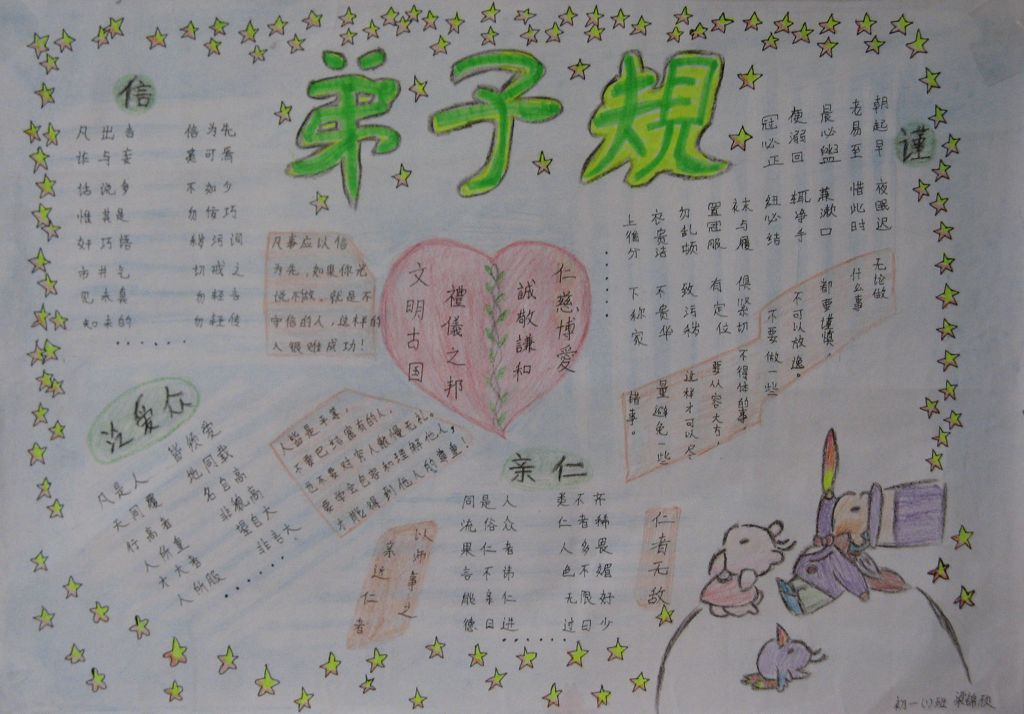 弟子規
信
凡出言 信为先
诈与妄 奚可焉
话说多 不如少
惟其是 勿佞巧
奸巧语 秽污词
市井气 切戒之
见未真 勿轻言
知未的 勿轻传
······
凡事应以信
为先,如果你光
说不做、就是不
守信的人,这样的
人很难成功!
文明古国
禮儀之邦
誠敬謙和
仁慈博愛
谨
朝起早 夜眠迟
老易至 惜此时
晨必盥 兼漱口
便溺回 辄净手
冠必正 纽必结
袜与履 俱紧切
置冠服 有定位
勿乱顿 致污秽
衣贵洁 不贵华
上循分 下称家
······
无论做
什么事
都要谨慎,
不可以放逸。
不要做一些
不得体的事
要从容大方,
这样才可以尽
量避免一些
错事。
泛爱众
凡是人 皆须爱
天同覆 地同载
行高者 名自高
人所重 非貌高
才大者 望自大
人所服 非言大
······
人皆是平等,
不要巴结富有的人,
也不要对穷人傲慢无礼。
要学会包容和理解他人,
才能得到他人的尊重!
亲仁
同是人 类不齐
流俗众 仁者稀
果仁者 人多畏
言不讳 色不媚
能亲仁 无限好
德日进 过日少
······
以师事之
亲近仁者
仁者无敌
初一(1)班